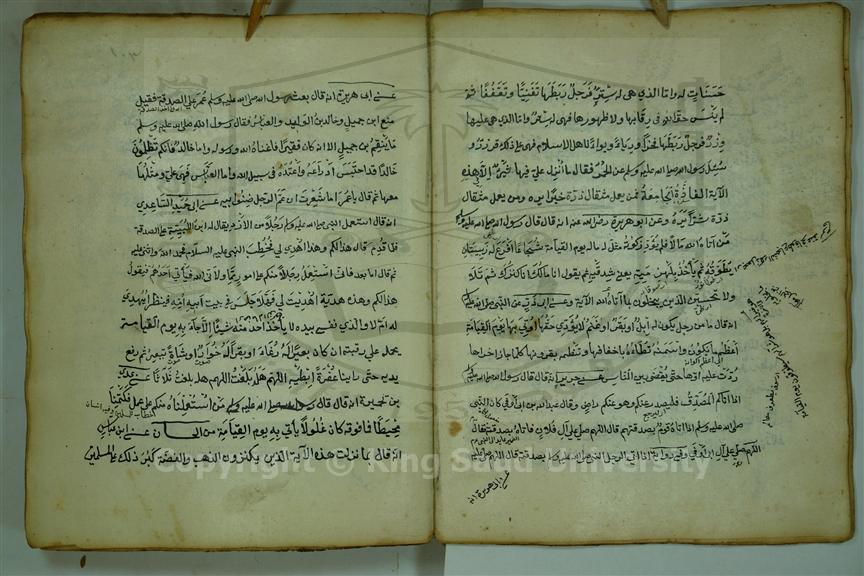 حسنات له واما الذي هي له ستر فرجل ربطها تغنيا وتعففا ثم
لم ينس حق الله في رقابها ولا ظهورها فهي له ستر واما الذي هي عليها
وزر فرجل ربطها فخرا ورياء ونواء لاهل الاسلام فهي على ذلك وزر و
سئل رسول الله صلى الله عليه وسلم عن الحمر فقال ما انزل علي فيها شيء الا هذه
الآية الفاذة الجامعة فمن يعمل مثقال ذرة خيرا يره ومن يعمل مثقال
ذرة شرا يره وعن ابو هريرة رضي الله عنه انه قال قال رسول الله صلى الله عليه وسلم
من آتاه الله مالا فلم يؤد زكوته مثل له ماله يوم القيامة شجاعا اقرع له زبيبتان
يطوقه ثم يأخذ بلهزمتيه يعني شدقيه ثم يقول انا مالك انا كنزك ثم تلا
ولا تحسبن الذين يبخلون بما آتاه الله الآية وعن ابى ذر عن النبي صلى الله عليه وسلم
انه قال ما من رجل يكون له ابل او بقر او غنم لا يؤدي حقها الا اوتي بها يوم القيامة
اعظم ما يكون واسمنه تطأه باخفافها وتنطحه بقرونها كلما جاز اخراها
ردت عليه اولاها حتى يقضى بين الناس عن جرير انه قال قال رسول الله صلى الله عليه وسلم
اذا اتاكم المصدق فليصدر عنكم وهو عنكم راض وقال عبد الله بن ابى اوفى كان النبي
صلى الله عليه وسلم اذا اتاه قوم بصدقتهم قال اللهم صل على آل فلان فاتاه ابي بصدقته فقال
اللهم صل على آل ابى اوفى وفي رواية اذا اتى الرجل النبي صلى الله عليه وسلم بصدقته قال اللهم صل عليه
عن ابى هريرة انه
١٠٣
عن ابى هريرة انه قال بعث رسول الله صلى الله عليه وسلم عمر على الصدقة فقيل
منع ابن جميل وخالد بن الوليد والعباس فقال رسول الله صلى الله عليه وسلم
ما ينقم بن جميل الا انه كان فقيرا فاغناه الله ورسوله واما خالد فانكم تظلمون
خالدا قد احتبس ادراعه واعتده في سبيل الله واما العباس فهي علي ومثلها
معها ثم قال يا عمر اما شعرت ان عم الرجل صنو ابيه عن ابى حميد الساعدي
انه قال استعمل النبي صلى الله عليه وسلم رجلا من الازد يقال له ابن اللتبية على الصدقة
فلما قدم قال هذا لكم وهذا اهدي لي فخطب النبي عليه السلام فحمد الله واثنى عليه
ثم قال اما بعد فاني استعمل رجلا منكم على امور مما ولاني الله فيأتي احدهم فيقول
هذا لكم وهذه هدية اهديت لي فهلا جلس في بيت ابيه او بيت امه فينظر ايهدى
له ام لا والذي نفسي بيده لا يأخذ احد منه شيئا الا جاء به يوم القيامة
يحمله على رقبته ان كان بعيرا له رغاء او بقرا له خوار او شاة تيعر ثم رفع
يديه حتى راينا عفرة ابطيه اللهم هل بلغت اللهم هل بلغت ثلاثا عن عدي
بن عميرة انه قال قال رسول الله صلى الله عليه وسلم من استعملناه منكم على عمل فكتمنا
مخيطا فما فوقه كان غلولا يأتي به يوم القيامة من الحسان عن ابن عباس
انه قال لما نزلت هذه الآية الذين يكنزون الذهب والفضة كبر ذلك على المسلمين
Copyright © King Saud University